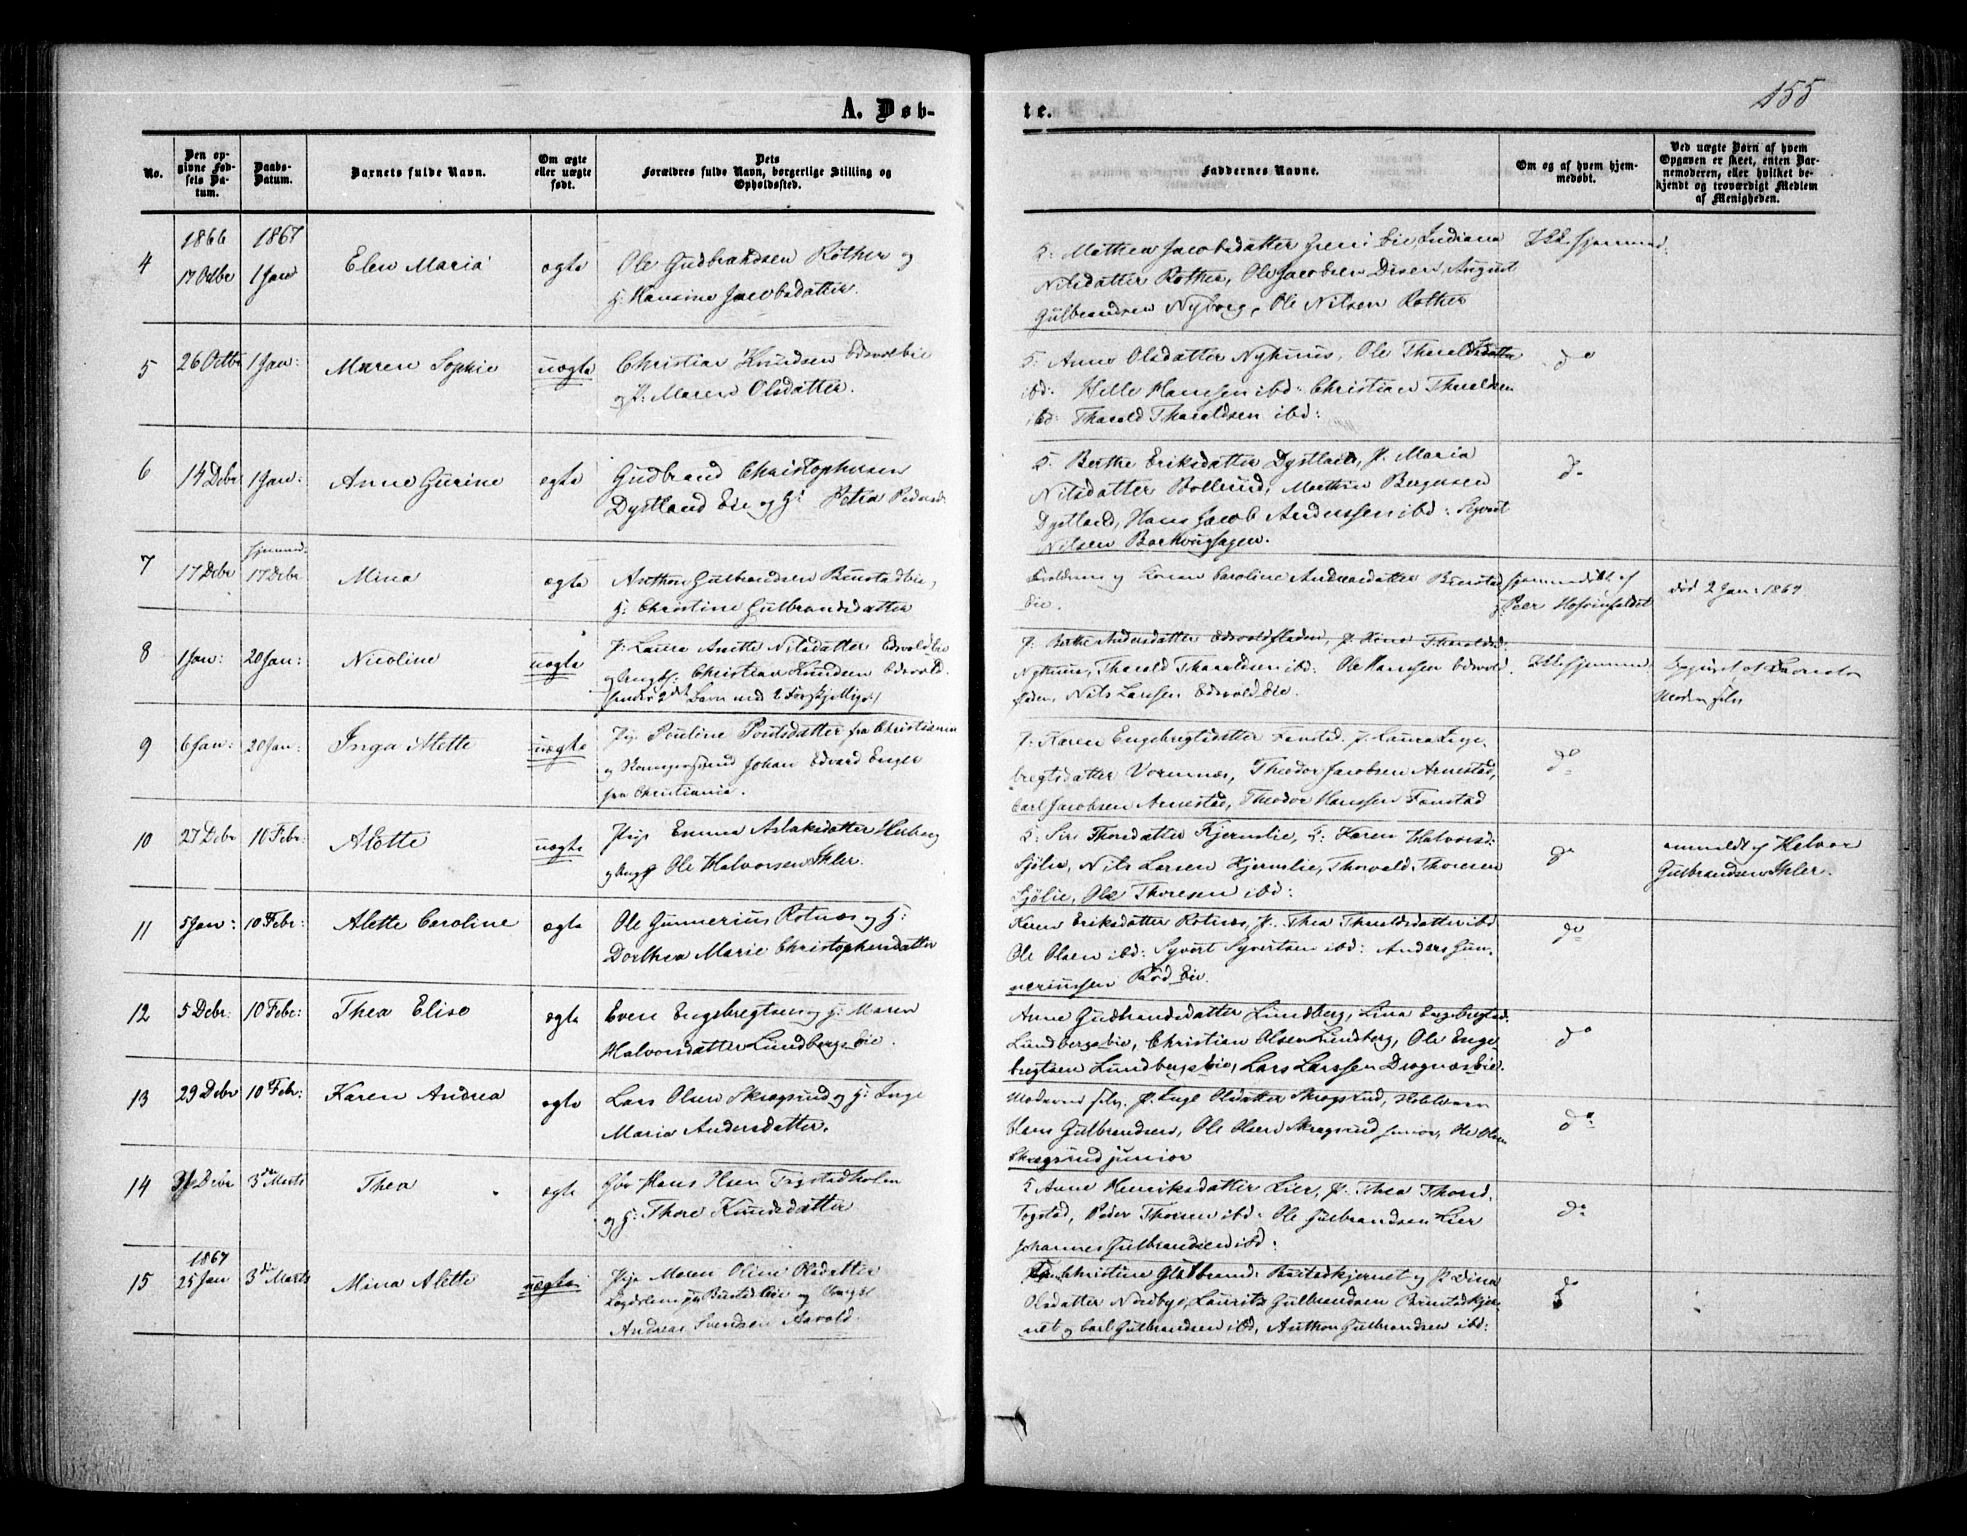 155
A. Døb-
te.
No.
Den op-
givne Fød-
sels Da-
tum.
Daabs-
Datum.
Barnets fulde Navn.
Om ægte
eller uægte
født.
Dets
Forældres fulde Navn, borgerlige Stilling og
Opholdssted.
Faddernes Navne.
Om og af hvem hjem-
medøbt.
Ved uægte Børn af hvem
Opgaven er skeet, enten Bar-
nemoderen, eller hvilket be-
kjendt og troværdigt Medlem
af Menigheden.
4
1866
17 Octbr
1867
1 Jan
Elen Maria
ægte
Ole Gudbrandsen Rother og
H: Hansine Jacobsdatter.
Mathea Jacobsdatter Eie Indiana
Nilsdatter Rother, Ole Jacobsen Disen, August
Gulbrandsen Nyborg, Ole Nilsen Rother
5
26 Octbr
1 Jan:
Maren Sophie
uægte
Christian Knudsen Edsvoldeie
og P: Maren Olsdatter.
Anne Olsdatter Nyhuus, Ole
ibd: Helle Hansen ibd: Christian Tharaldsen
ibd: Tharald Tharaldsen ibd:
do
6
14 Debr
1 Jan:
Anne Gurine
ægte
Gudbrand Christophersen
Dystland Eie og H: Petra Pedersd.
Berthe Eriksdatter P. Maria
Nilsdatter Bollerud, Mathias Bergersen
Dystland, Hans Jacob Anderssen ibd: Syvert
Nilsen
do
7
17 Debr
17 Debr
Mina
ægte
Anthon Gulbrandsen Bunstadeie,
H: Christine Gulbrandsdatter
og Konen Caroline Andreasdatter
Eie.
hjemmedøbt af
Peer
død 2 Jan: 1867
8
1 Jan:
20 Jan:
Nicoline
uægte
P: Laura Anette Nilsdatter
og Ungk: Christian Knudsen Edsvold.
2det Barn med 2
P. Berthe Andersdatter Edsvoldfladen, P.
Nyhuus, Tharald Tharaldsen ibd: Ole Hanssen Edsvold
Nils Larsen Edsvold Eie.
Ikke hjemmed.
af
Moderen selv
9
6 Jan:
20 Jan:
Inga Alette
uægte
Pige Pouline Poulsdatter fra Christiania
og Johan Edvard Enger
fra Christiania.
P. Karen Engebregtsdatter Fonstad. P. Laura Enge-
bregtsdatter Vormnæs, Theodor Jacobsen Arnestad,
Carl Jacobsen Arnestad, Theodor Hanssen Fonstad
do
10
27 Debr
10 Febr:
Alette
uægte
Pige Emma Aslaksdatter
og Ungk Ole Halvorsen Ihler.
Siri Thorsdatter Hjernlie, Karen Halvorsd:
Sjølie, Nils Larsen Hjernlie, Thorvald Thoresen
Sjølie, Ole Thoresen ibd:
do
anmeldt af Halvor
Gulbrandsen Ihler.
11
5 Jan:
10 Febr:
Alette Caroline
ægte
Ole Gunnerius Rotnæs og H:
Dorthea Marie Christophersdatter
Karen Eriksdatter Rotnæs, P. Thea Tharaldsdatter ibd
Ole Olsen ibd: Syvert Syvertsen ibd: Anders Gun-
neriussen Rød Eie.
do
12
5 Debr:
10 Febr:
Thea Elise
ægte
Even Engebregtsen og H: Maren
Halvorsdatter Lundbergs Eie.
Anne Gudbrandsdatter Lundberg, Lina Engebregtsd.
Lundbergseie, Christian Olsen Lundberg, Ole Enge-
bregtsen Lundbergseie, Lars Larssen Drognæseie.
do
13
29 Debr
10 Febr:
Karen Andrea
ægte
Lars Olsen Skragsrud og H: Inge
Maria Andersdatter.
Moderen selv. P. Inge Olsdatter Skragsrud,
Hans Gulbrandsen, Ole Olsen Skragsrud senior, Ole Olsen
Skragsrud junior
do
14
Debr
3de Marts
Thea
ægte
Hans Olsen
og H: Thore Knudsdatter
Anne Henriksdatter Lier, P. Thea Thorsd.
Togstad, Peder Thoresen ibd: Ole Gulbrandsen Lier
Johannes Gulbrandsen ibd:
do
15
1867
25 Jan
3de Marts
Mina Alette
uægte
Pige Maren Oline Olsdatter
og Ungk:
Andreas Svendsen Aavold.
Christine Gulbrand: Bunstadkjernet og P. Dina
Olsdatter Nordbye, Laurits Gulbrandsen Bunstadkjer-
net og Carl Gulbrandsen ibd, Anthon Gulbrandsen ibd:
do